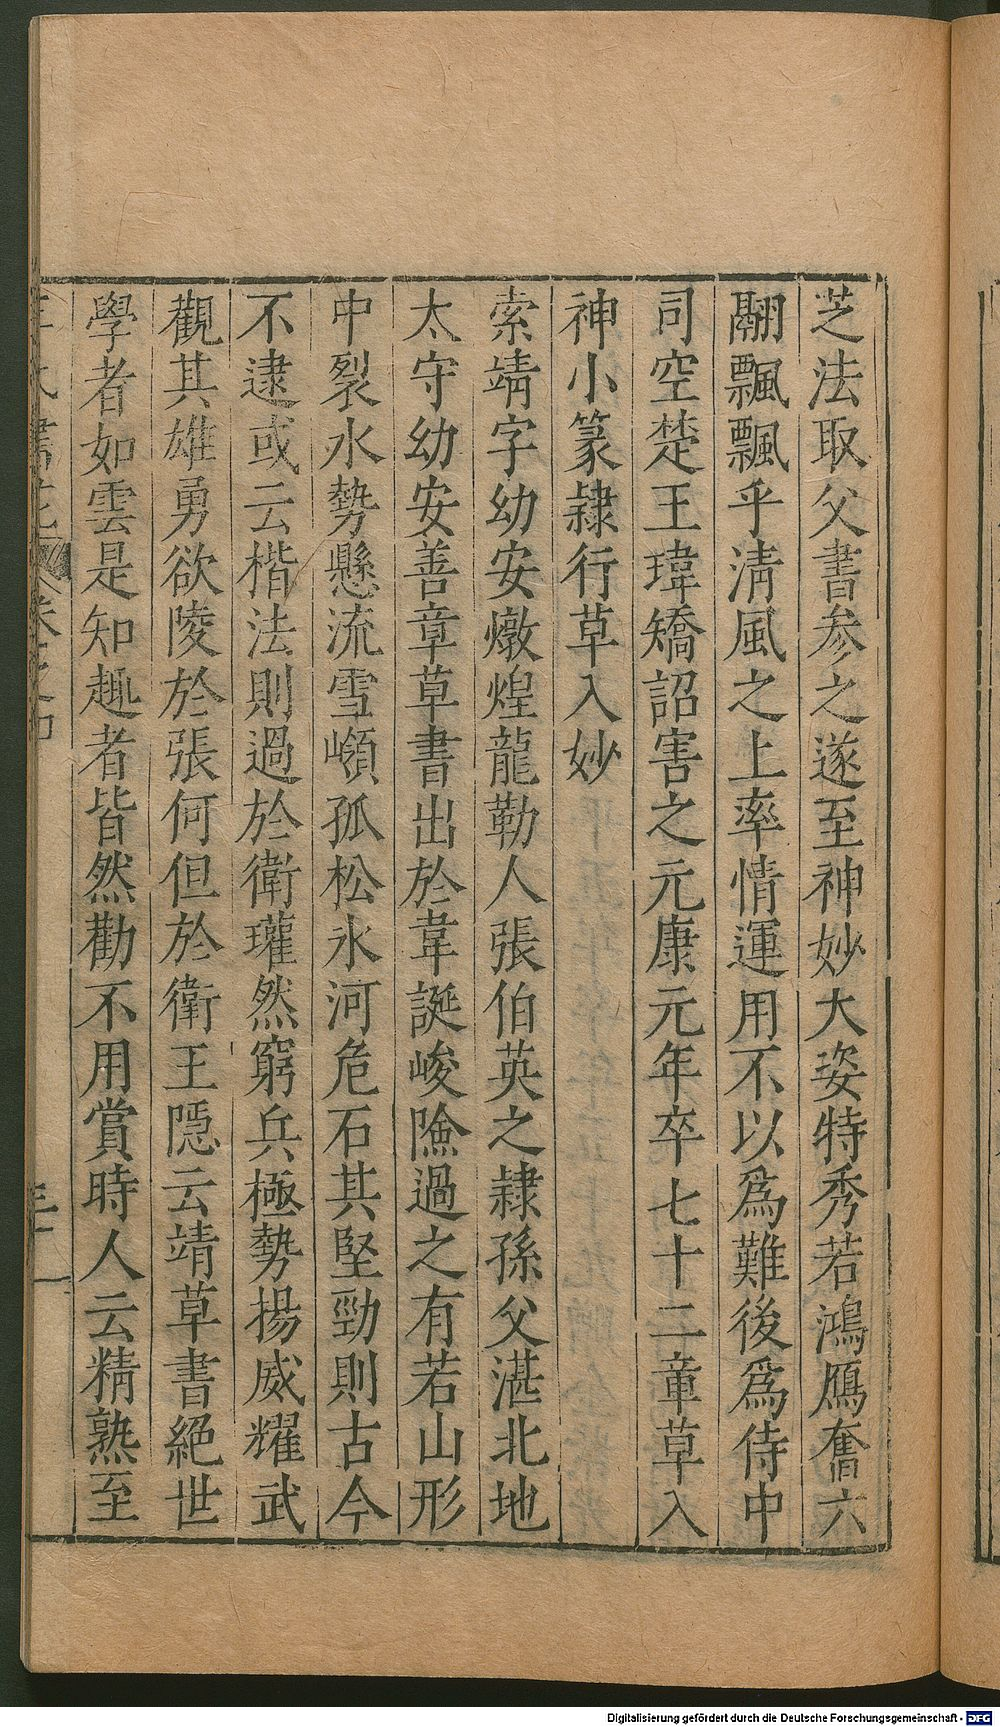 芝法取父書叅之遂至神妙大姿特秀若鴻鴈奮六
翮飄飄乎清風之上率情運用不以爲難後爲侍中
司空楚王瑋矯詔害之元康元年卒七十二章草入
神小篆隷行草入妙
索靖字幼安燉煌龍勒人張伯英之隷孫父湛北地
太守幼安善章草書出於韋誕峻隂過之有若山形
中裂水勢懸流雪嶺孤松氷河危石其堅勁則古今
不逮或云楷法則過於衛瓘然窮兵極勢揚威耀武
觀其雄勇欲陵於張何但於衛王隠云靖草書絕世
學者如雲是知趣者皆然勸不用賞時人云精熟至
卷之四
三十一
Digitalisierung gefördert durch die Deutsche Forschungsgemeinschaft - DFG